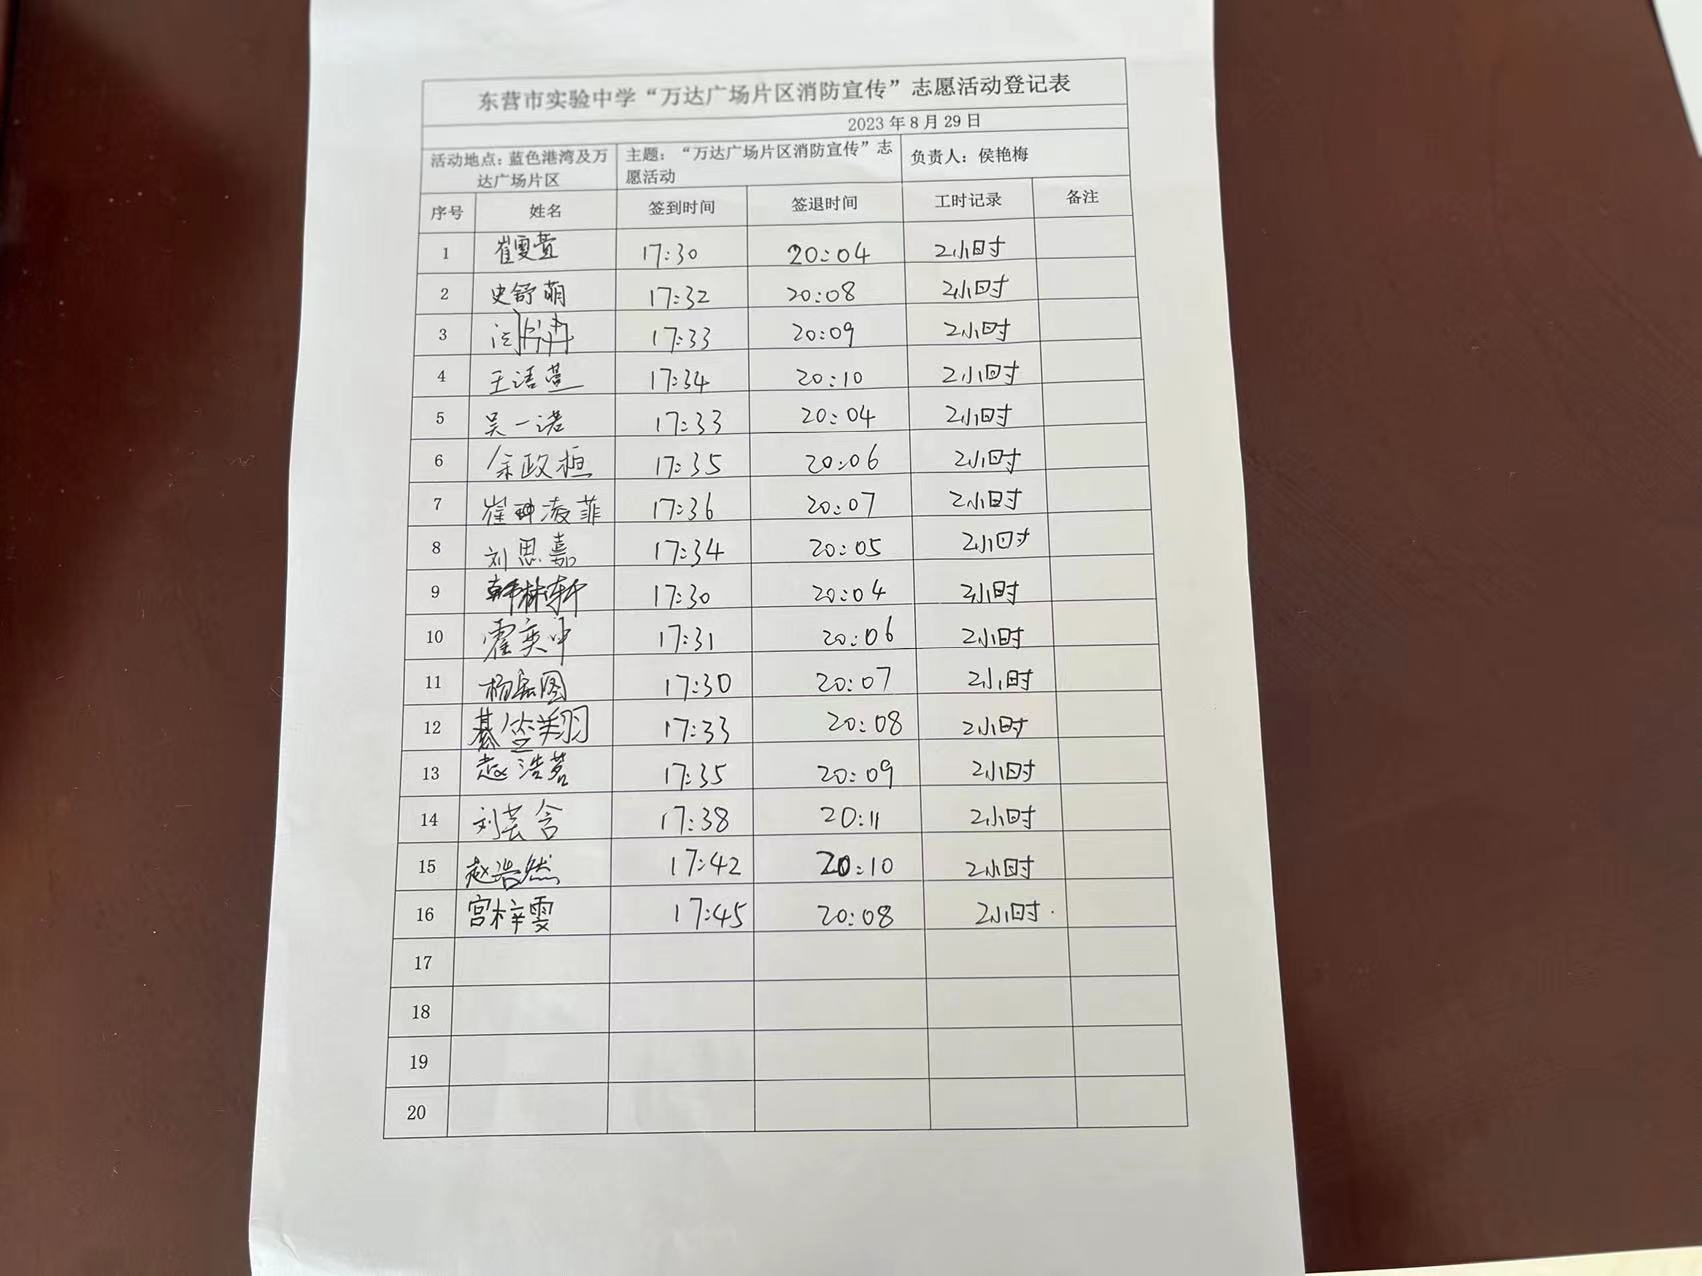 东营市实验中学“万达广场片区消防宣传”志愿活动登记表
2023 年 8 月 29 日
活动地点：蓝色港湾及万达广场片区 主题：“万达广场片区消防宣传”志愿活动 负责人：侯艳梅
序号 姓名 签到时间 签退时间 工时记录 备注
1 崔雯萱 17:30 20:04 2小时
2 史舒萌 17:32 20:08 2小时
3 17:33 20:09 2小时
4 王语萱 17:34 20:10 2小时
5 吴一诺 17:33 20:04 2小时
6 余政桓 17:35 20:06 2小时
7 崔 凌菲 17:36 20:07 2小时
8 刘思嘉 17:34 20:05 2小时
9 韩林轩 17:30 20:04 2小时
10 霍奕冲 17:31 20:06 2小时
11 杨 图 17:30 20:07 2小时
12 綦 翔 17:33 20:08 2小时
13 赵浩茗 17:35 20:09 2小时
14 刘芸含 17:38 20:11 2小时
15 赵浩然 17:42 20:10 2小时
16 宫梓雯 17:45 20:08 2小时
17
18
19
20